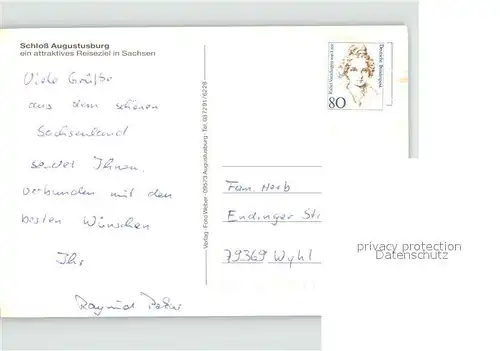 Schloß Augustusburg
ein attraktives Reiseziel in Sachsen
Viele Grüße
aus dem schönen
Sachsenland
sendet Ihnen,
verbunden mit den
besten Wünschen
Ihr
Verlag · Foto Weber · 09573 Augustusburg · Tel. 037291/6228
Deutsche Bundespost
80
Fam. Herb
Endinger Str
79369 Wyhl
privacy protection
Datenschutz